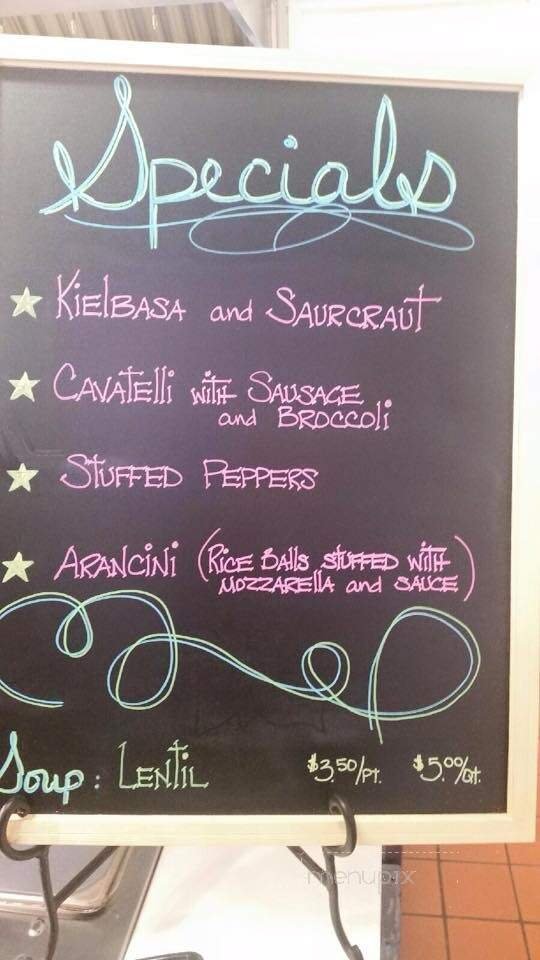 Specials
KielBASA and SAURCRAUT
CAVATElli WITH SAUSAGE
and BROCColi
STUFFED PEPPERS
ARANCiNi (RiCE BAlls STUFFED WITH
MOZZAREllA and SAUCE)
Soup: LENTiL $3.50/PT. $5.00/QT.
menupix